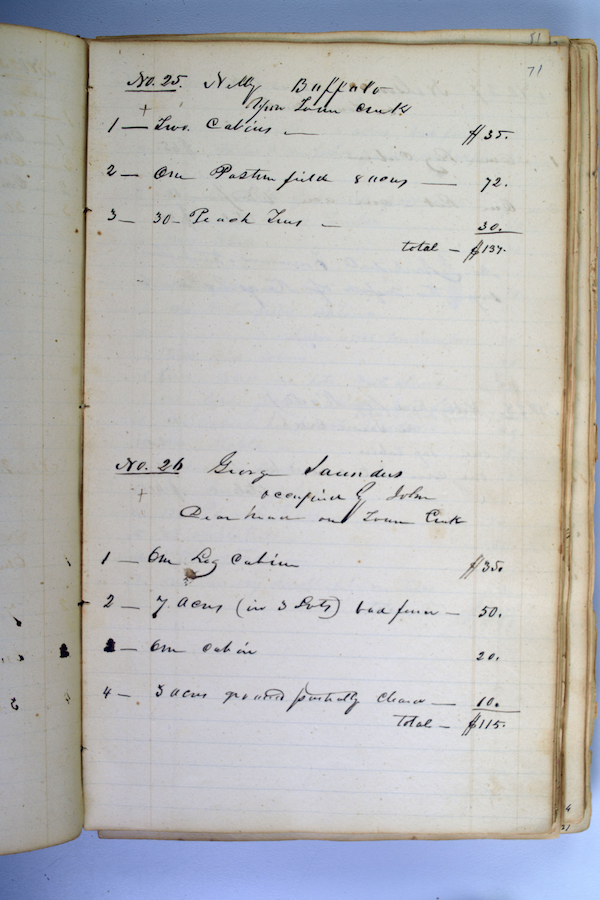 51
71
No. 25. Nelly Buffalo
+ upon Town Creek
1 — Two Cabins — $35.
2 — One Pasture field 8 acres — 72.
3 — 30 — Peach Trees — 30.
total — $137.
No. 26 George Saunders
+ occupied by John
+ on Town Creek
1 — One Log Cabin $35.
2 — 7 acres (in 3 Lots) bad fence — 50.
3 — One cabin 20.
4 — 5 acres ground partially cleared — 10.
Total — $115.